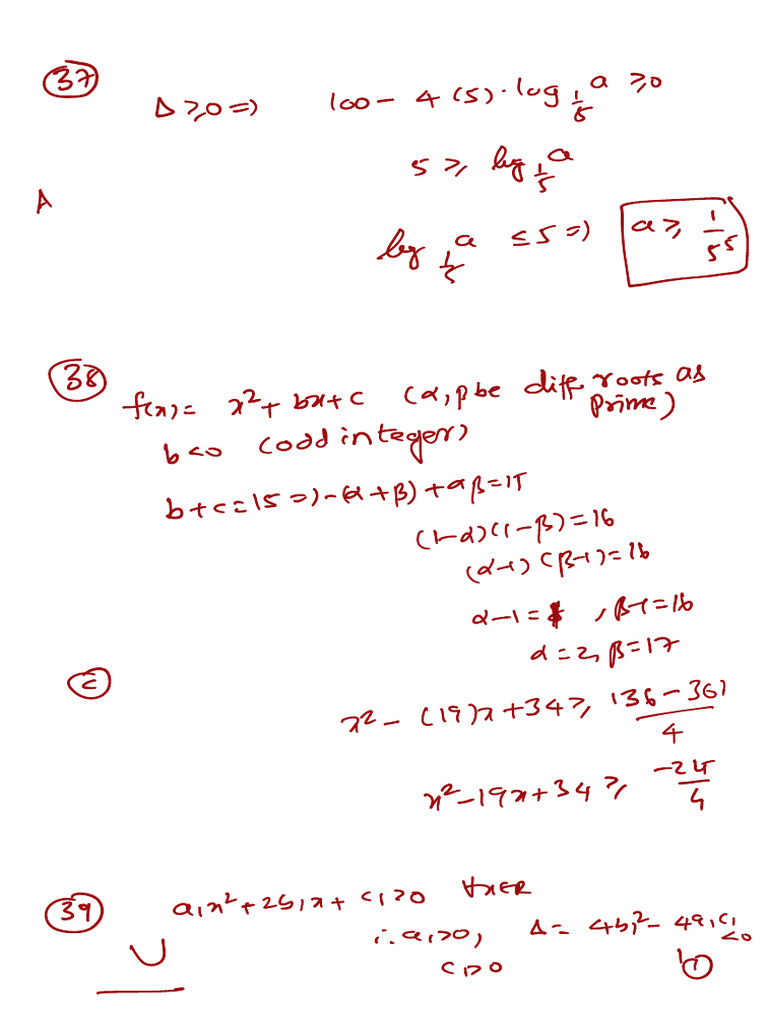 37
Δ≥0 ⇒ 100 - 4(5)·log_{1/5} a ≥0
5 ≥ log_{1/5} a
A
log_{1/5} a ≤ 5 ⇒ a ≥ 1/5^5
38
f(x) = x² + bx + c (α, β be diff roots as prime)
b<0 (odd integer)
b+c=15 ⇒ -(α+β)+αβ=15
(1-α)(1-β)=16
(α-1)(β-1)=16
α-1=1, β-1=16
α=2, β=17
C
x² - (19)x + 34 ≥ (136 - 361)/4
x² - 19x + 34 ≥ -225/4
39
a₁x² + 2b₁x + c₁ > 0 ∀x∈R
∴ a₁>0, Δ = 4b₁² - 4a₁c₁ <0
c₁>0